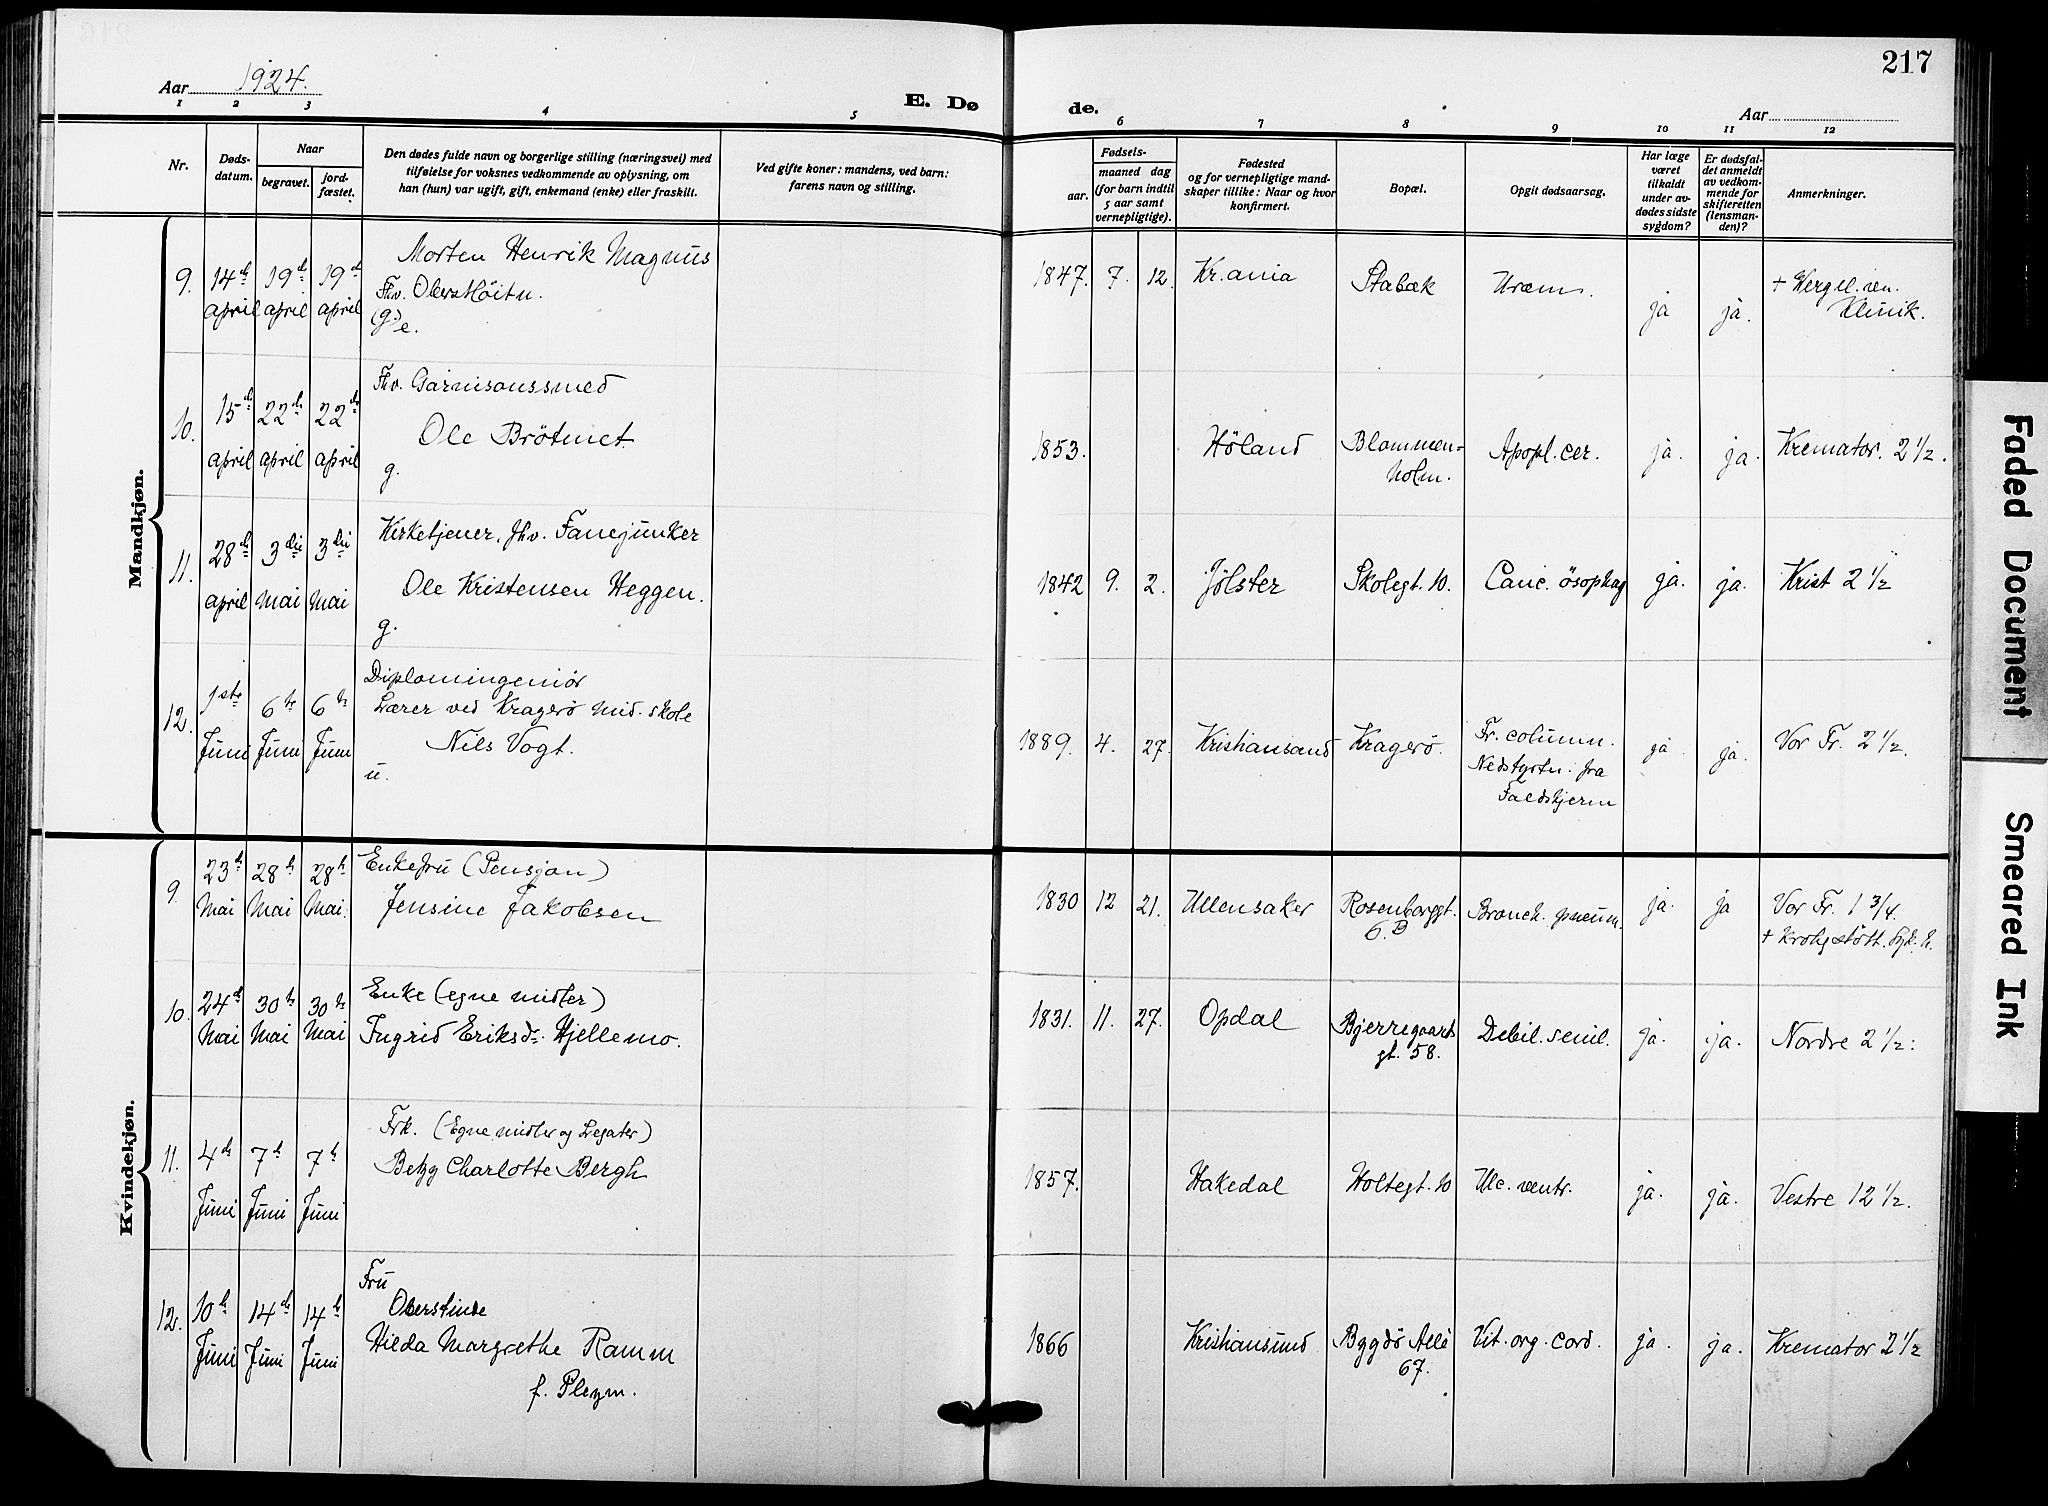 217
Aar 1924.
E. Døde.
Aar
1 2 3 4 5 6 7 8 9 10 11 12
Nr.
Dødsdatum.
Naar
begravet.
jordfæstet.
Den dødes fulde navn og borgerlige stilling (næringsvei) med
tilføielse for voksnes vedkommende av oplysning, om
han (hun) var ugift, gift, enkemand (enke) eller fraskilt.
Ved gifte koner: mandens, ved barn:
farens navn og stilling.
Fødsels-
aar.
maaned dag
(for barn indtil
5 aar samt
vernepligtige).
Fødested
og for vernepligtige mand-
skaper tillike: Naar og hvor
konfirmert.
Bopæl.
Opgit dødsaarsag.
Har læge
været
tilkaldt
under av-
dødes sidste
sygdom?
Er dødsfal-
det anmeldt
av vedkom-
mende for
skifteretten
(lensman-
den)?
Anmerkninger.
Mandkjøn.
9. 14de april 19de april 19de april
Morten Henrik Magnus
Fhv. Oberstløitn.
g.
1847. 7. 12. Kr.ania Stabæk Uræmi. ja ja.
+ Hergel. ven.
Klinik.
10. 15de april 22de april 22de april
Fhv. Garnisonssmed
Ole Brötmet
g.
1853. Höland Blommen-
holm. Apopl. cer. ja. ja. Kremator. 2 1/2.
11. 28de april 3die Mai 3die Mai
Kirketjener, fhv. Fanejunker
Ole Kristensen Heggen.
g.
1842 9. 2. Jölster Skolegt. 10. Canc. ösophag ja. ja. Krist 2 1/2
12. 1ste Juni 6te Juni 6te Juni
Diplomingeniør
Lærer ved Kragerö mid. skole
Nils Vogt.
u.
1889. 4. 27. Kristiansand Kragerö. Fr. column.
Nedstyrtn. fra
Faldskjerm ja ja. Vor Fr. 2 1/2.
Kvindekjøn.
9. 23de Mai 28de Mai 28de Mai.
Enkefru (Pensjon)
Jensine Jakobsen
1830 12 21. Ullensaker Rosenborggt.
6.B Bronch. pneum. ja. ja Vor Fr. 1 3/4.
+ Krohgstött. Syk. h.
10. 24de Mai 30te Mai 30te Mai
Enke (egne midler)
Ingrid Eriksdr. Hjellemo.
1831. 11. 27. Opdal Bjerregaards
gt. 58. Debil. senil. ja. ja. Nordre 2 1/2.
11. 4de Juni 7de Juni 7de Juni
Frk. (Egne midler og Legater)
Betzy Charlotte Bergh
1857. Hakedal Holtegt. 10 Ulc. ventr. ja. ja. Vestre 12 1/2.
12. 10de Juni 14de Juni 14de Juni
Fru
Oberstinde
Hilda Margrethe Ramm
f. Pleym.
1866 Kristiansund Bygdö Allé
67. Vit. org. cord. ja. ja. Kremator 2 1/2
Faded Document
Smeared Ink